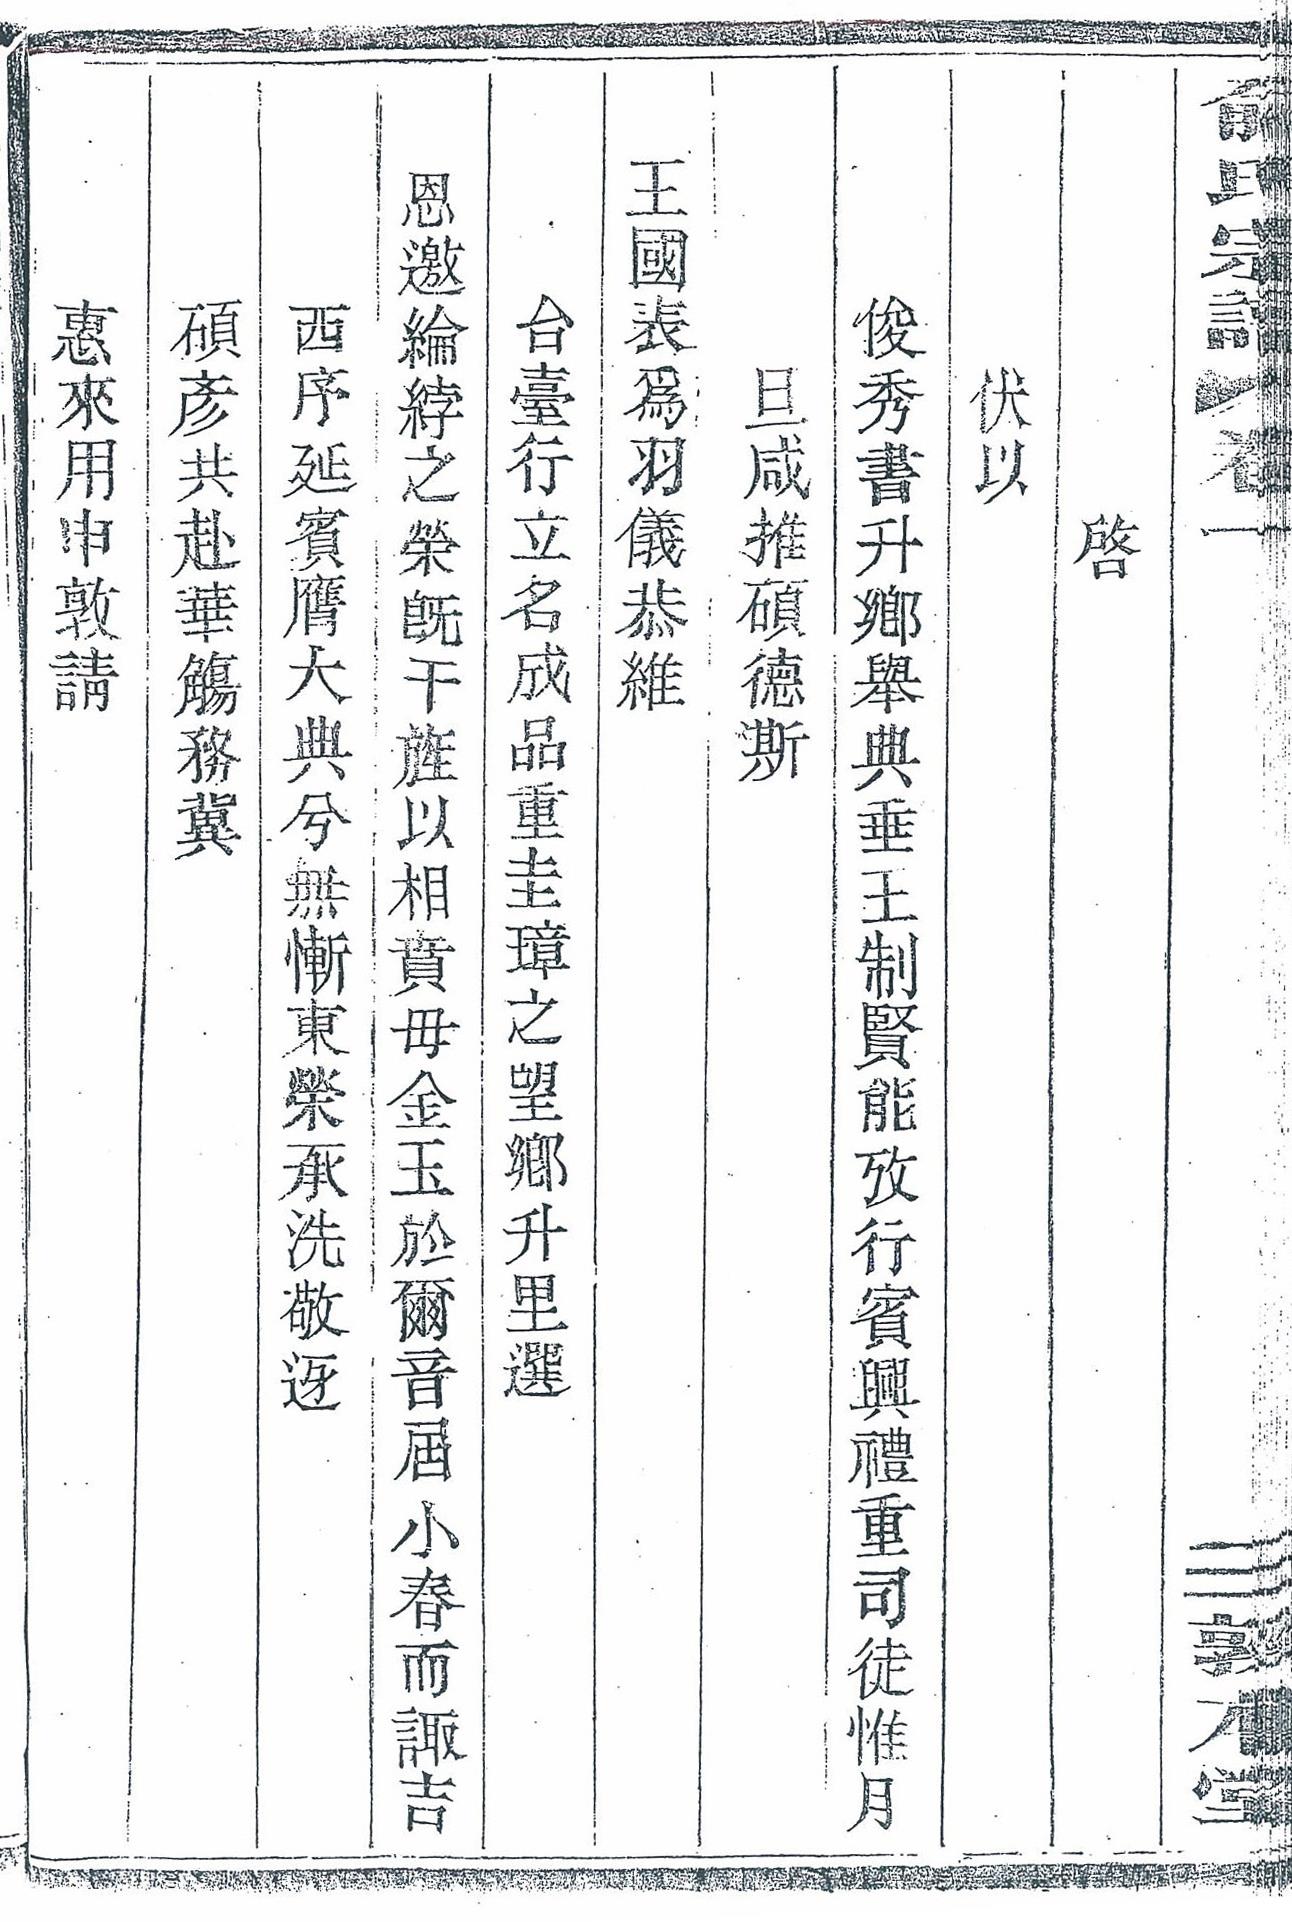 俞氏宗譜 卷一 三 敦本堂
啓
伏以
俊秀書升鄉舉典垂王制賢能攷行賓興禮重司徒惟月
旦咸推碩德斯
王國表爲羽儀恭維
台臺行立名成品重圭璋之望鄉升里選
恩邀綸綍之榮旣干旌以相賁毋金玉於爾音屆小春而諏吉
西序延賓膺大典兮無慚東榮承洗敬迓
碩彥共赴華觴務冀
惠來用申敦請